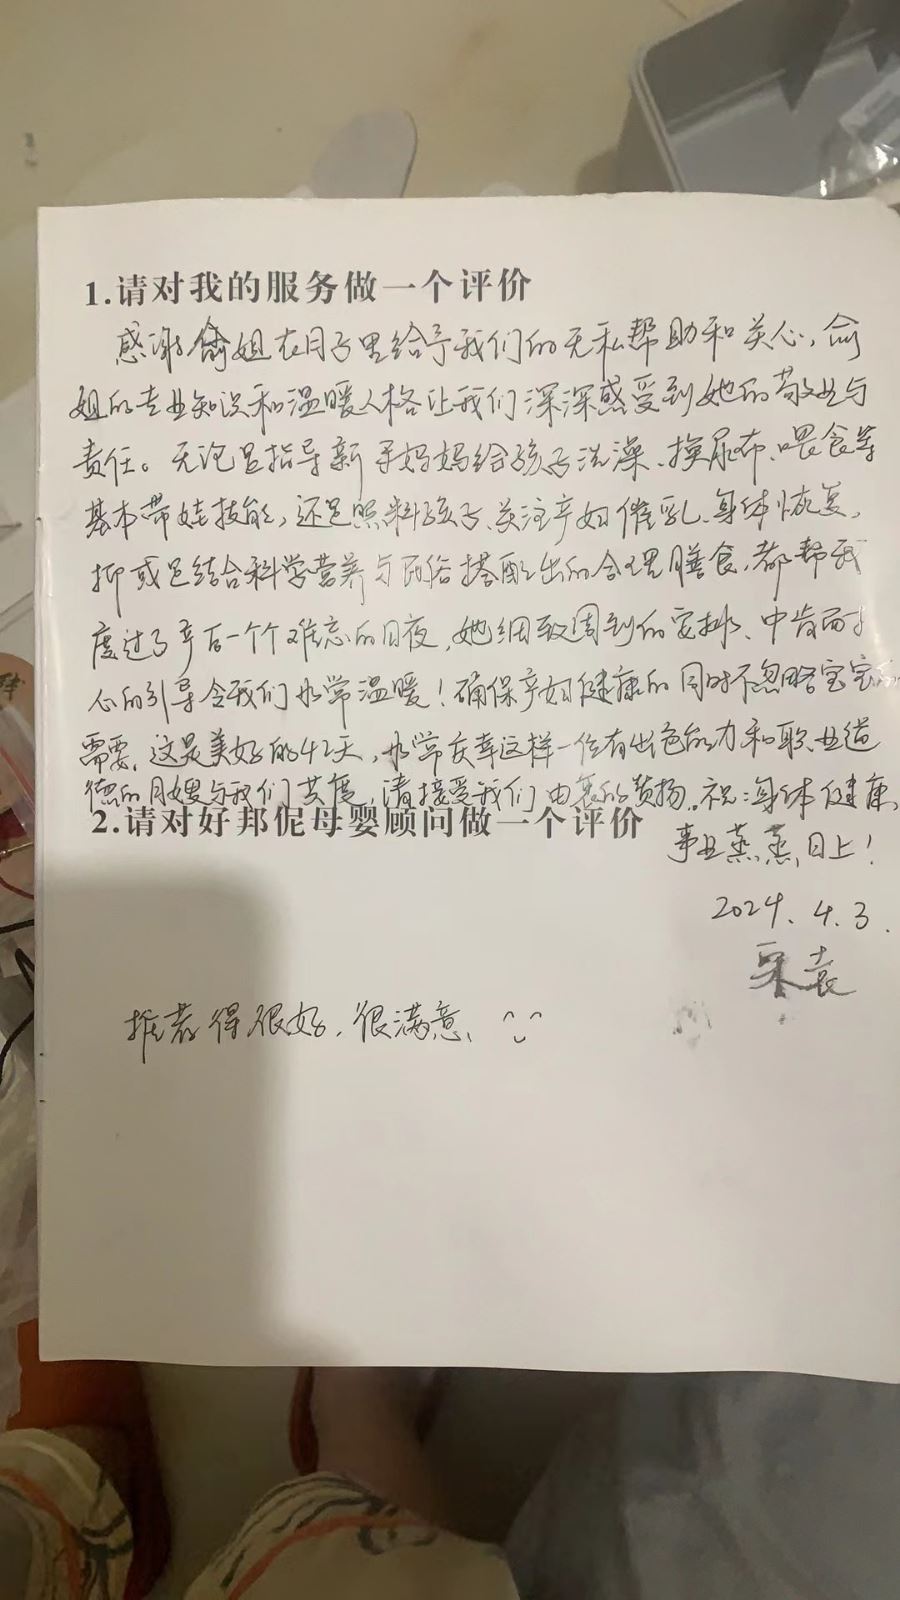 1.请对我的服务做一个评价
感谢俞姐在月子里给予我们的无私帮助和关心，俞
姐的专业知识和温暖人格让我们深深感受到她的敬业与
责任。无论是指导新手妈妈给孩子洗澡、换尿布、喂食等
基本带娃技能，还是照料孩子、关注产妇催乳、身体恢复，
抑或是结合科学营养与民俗搭配出的合理膳食，都帮我
度过了产后一个个难忘的日夜，她细致周到的安排、中肯而
心的引导令我们非常温暖！确保产妇健康的同时不忽略宝宝
需要，这是美好的42天，非常庆幸这样一位有出色能力和职业道
德的月嫂与我们共度，请接受我们由衷的赞扬。祝：身体健康，
事业蒸蒸日上！
2024.4.3.
2.请对好邦伲母婴顾问做一个评价
推荐得很好，很满意、